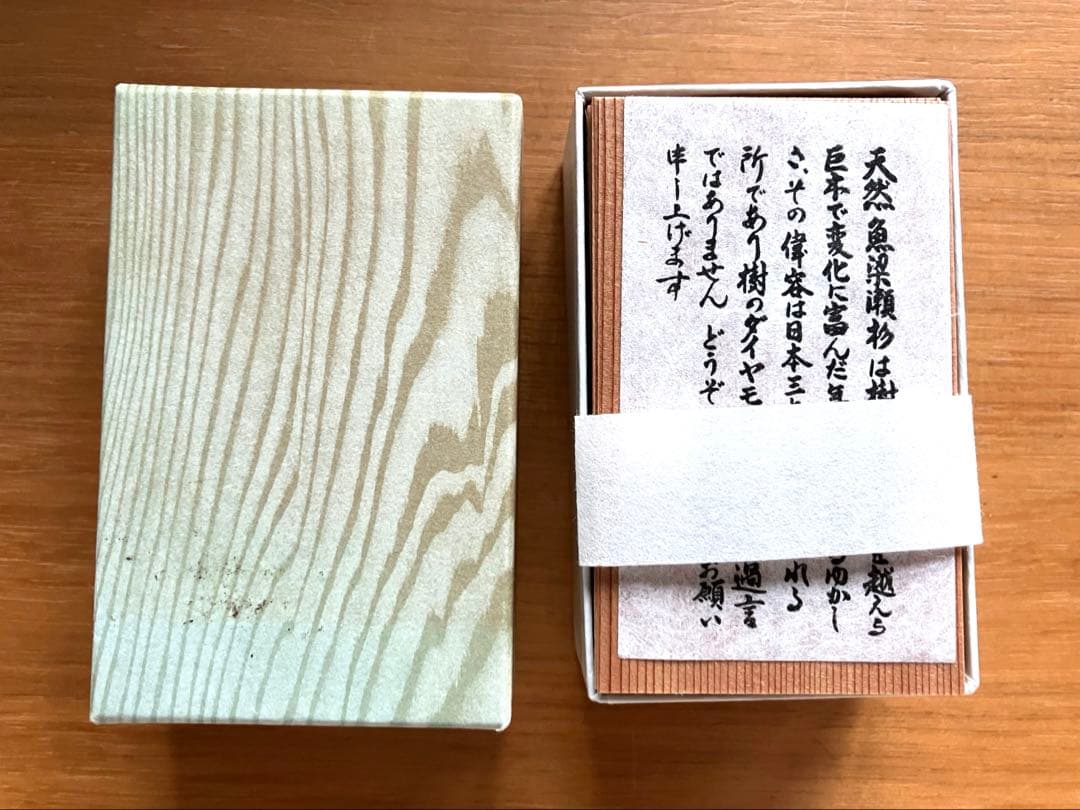 天然魚梁瀬杉は樹 越える
巨木で変化に富んだ年 るゆかし
さ、その偉容は日本三 れる
所であり樹のダイヤモ 過言
ではありません どうぞ お願い
申し上げます